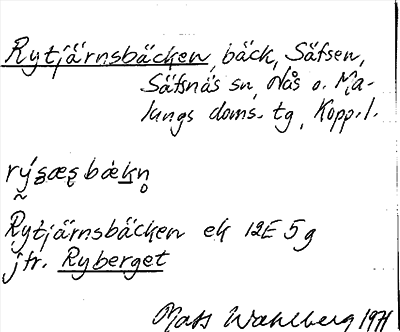 Rytjärnsbäcken, bäck, Säfsen,
Säfsnäs sn, Nås o. Ma-
lungs doms. tg, Kopp. l.
Rytjärnsbäcken ek 12E 5g
jfr. Ryberget
Mats Wahlberg 1971